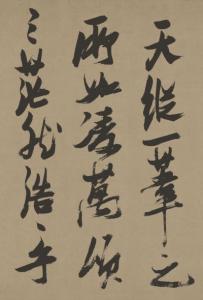 天縱一葦之
所如凌萬頃
之茫然浩〻乎